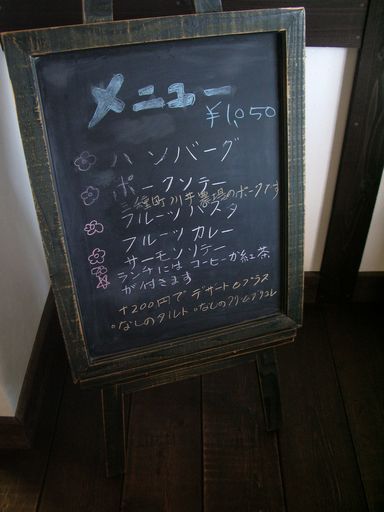 メニュー
¥1,050
ハンバーグ
ポークソテー
三種町川井農場のポークです
フルーツパスタ
フルーツカレー
サーモンソテー
ランチにはコーヒーか紅茶
が付きます
+200円でデザートもプラス
○なしのタルト ○なしのクリームブリュレ